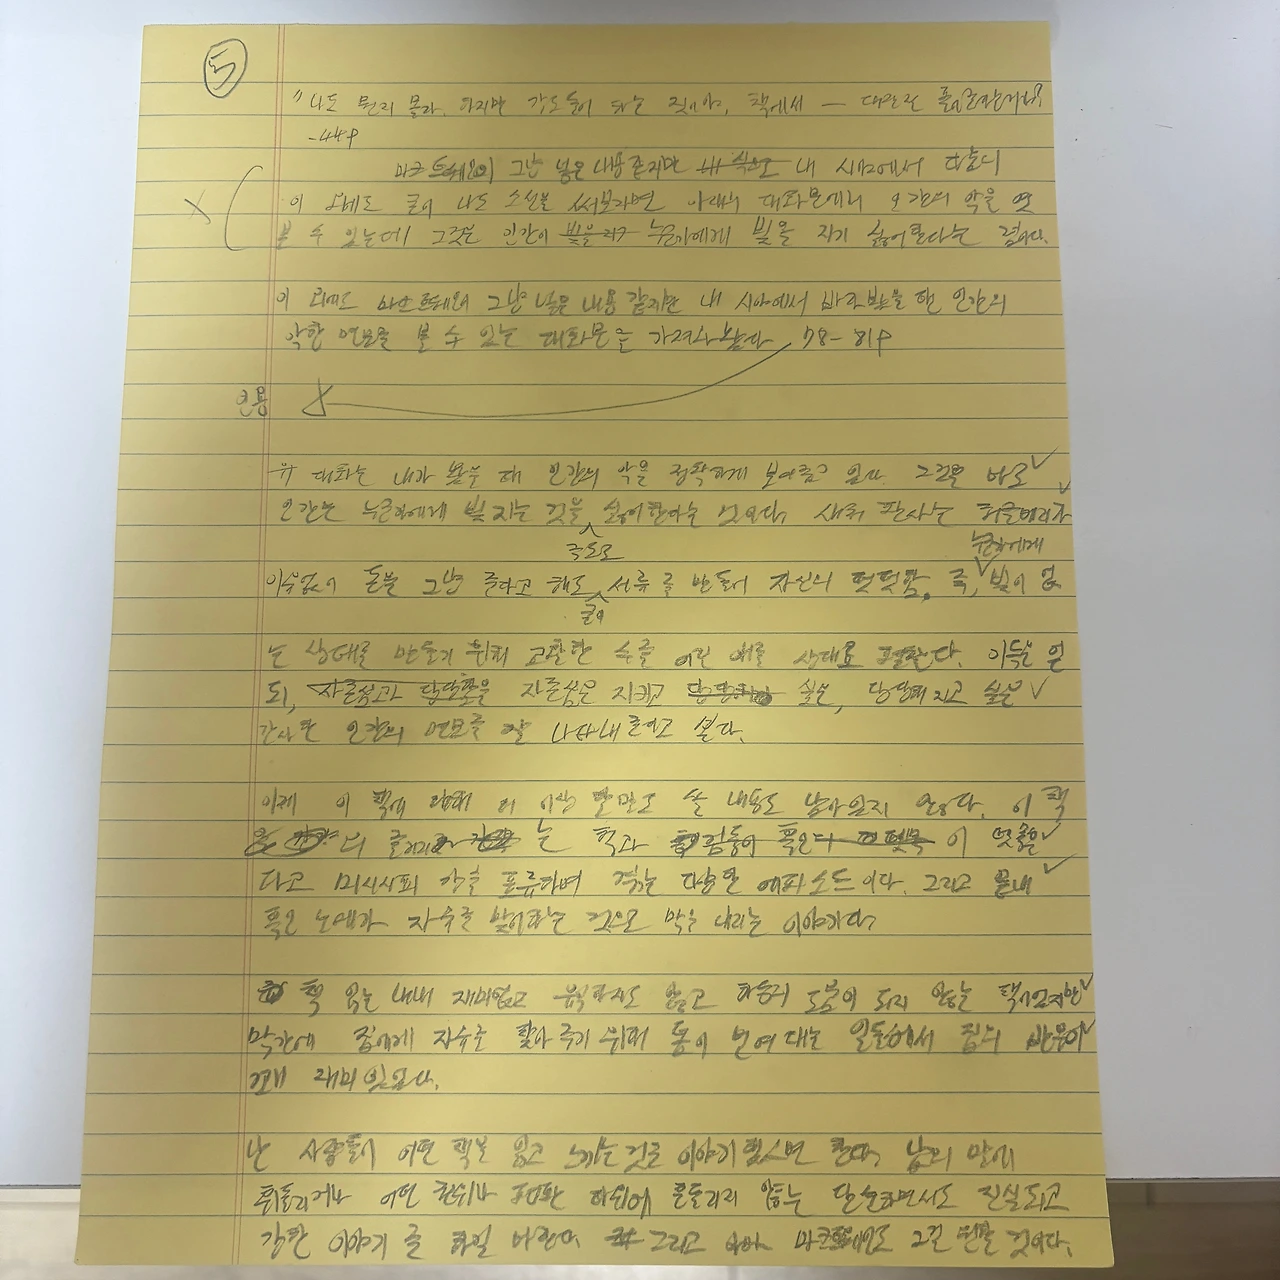 5
"나도 뭔지 몰라. 하지만 강도들이 하는 짓이야. 책에서 —
-44p
마크 트웨인이 그냥 넣은 내용 같지만 내 시각에서
이 외에도 굳이 나도 소설을 써보자면 아래의 대화문에서 인간의 악을 엿
볼 수 있는데 그것은 인간이 빚을 지기 누군가에게 빚을 지기 싫어한다는 점이다.
이 외에도 마크 트웨인이 그냥 넣은 내용 같지만 내 시야에서 바라봤을 때 인간의
악한 면모를 볼 수 있는 대화문을 가져와 봤다 78-81p
인용
위 대화는 내가 봤을 때 인간의 악을 정확하게 보여주고 있다. 그것은 바로
인간은 누군가에게 빚 지는 것을 싫어한다는 것이다. 새처 판사는 허클베리가
극도로
누군가에게
이유없이 돈을 그냥 준다고 해도 서류를 만들어 자신의 떳떳함, 즉, 빚이 없
굳이
는 상태를 만들기 위해 교활한 수를 어린 애를 상대로 펼친다. 이득은 얻
되, 자존심과 당당함을 자존심은 지키고 싶은, 당당해지고 싶은
간사한 인간의 면모를 잘 나타내 준다고 본다.
이제 이 책에 대해 더 이상 할 말도 쓸 내용도 남아있지 않다. 이 책
의 줄거리는 책과 이 뗏목을
타고 미시시피 강을 표류하며 겪는 다양한 에피소드이다. 그리고 끝내
흑인 노예가 자유를 맞이하는 것으로 막을 내리는 이야기다.
책 읽는 내내 재미없고 유익하지도 않고 하등의 도움이 되지 않는 책이었지만
막간에 짐에게 자유를 찾아 주기 위해 톰이 벌여 대는 일들에서 짐의 반응이
꽤 재미있었다.
난 사람들이 어떤 책을 읽고 느끼는 것을 이야기 했으면 한다. 남의 말에
휘둘리거나 어떤 권위나 하에 흔들리지 않는 단순하면서도 진실되고
강한 이야기를 하길 바란다. 그리고 아마 마크트웨인도 그걸 원할 것이다.